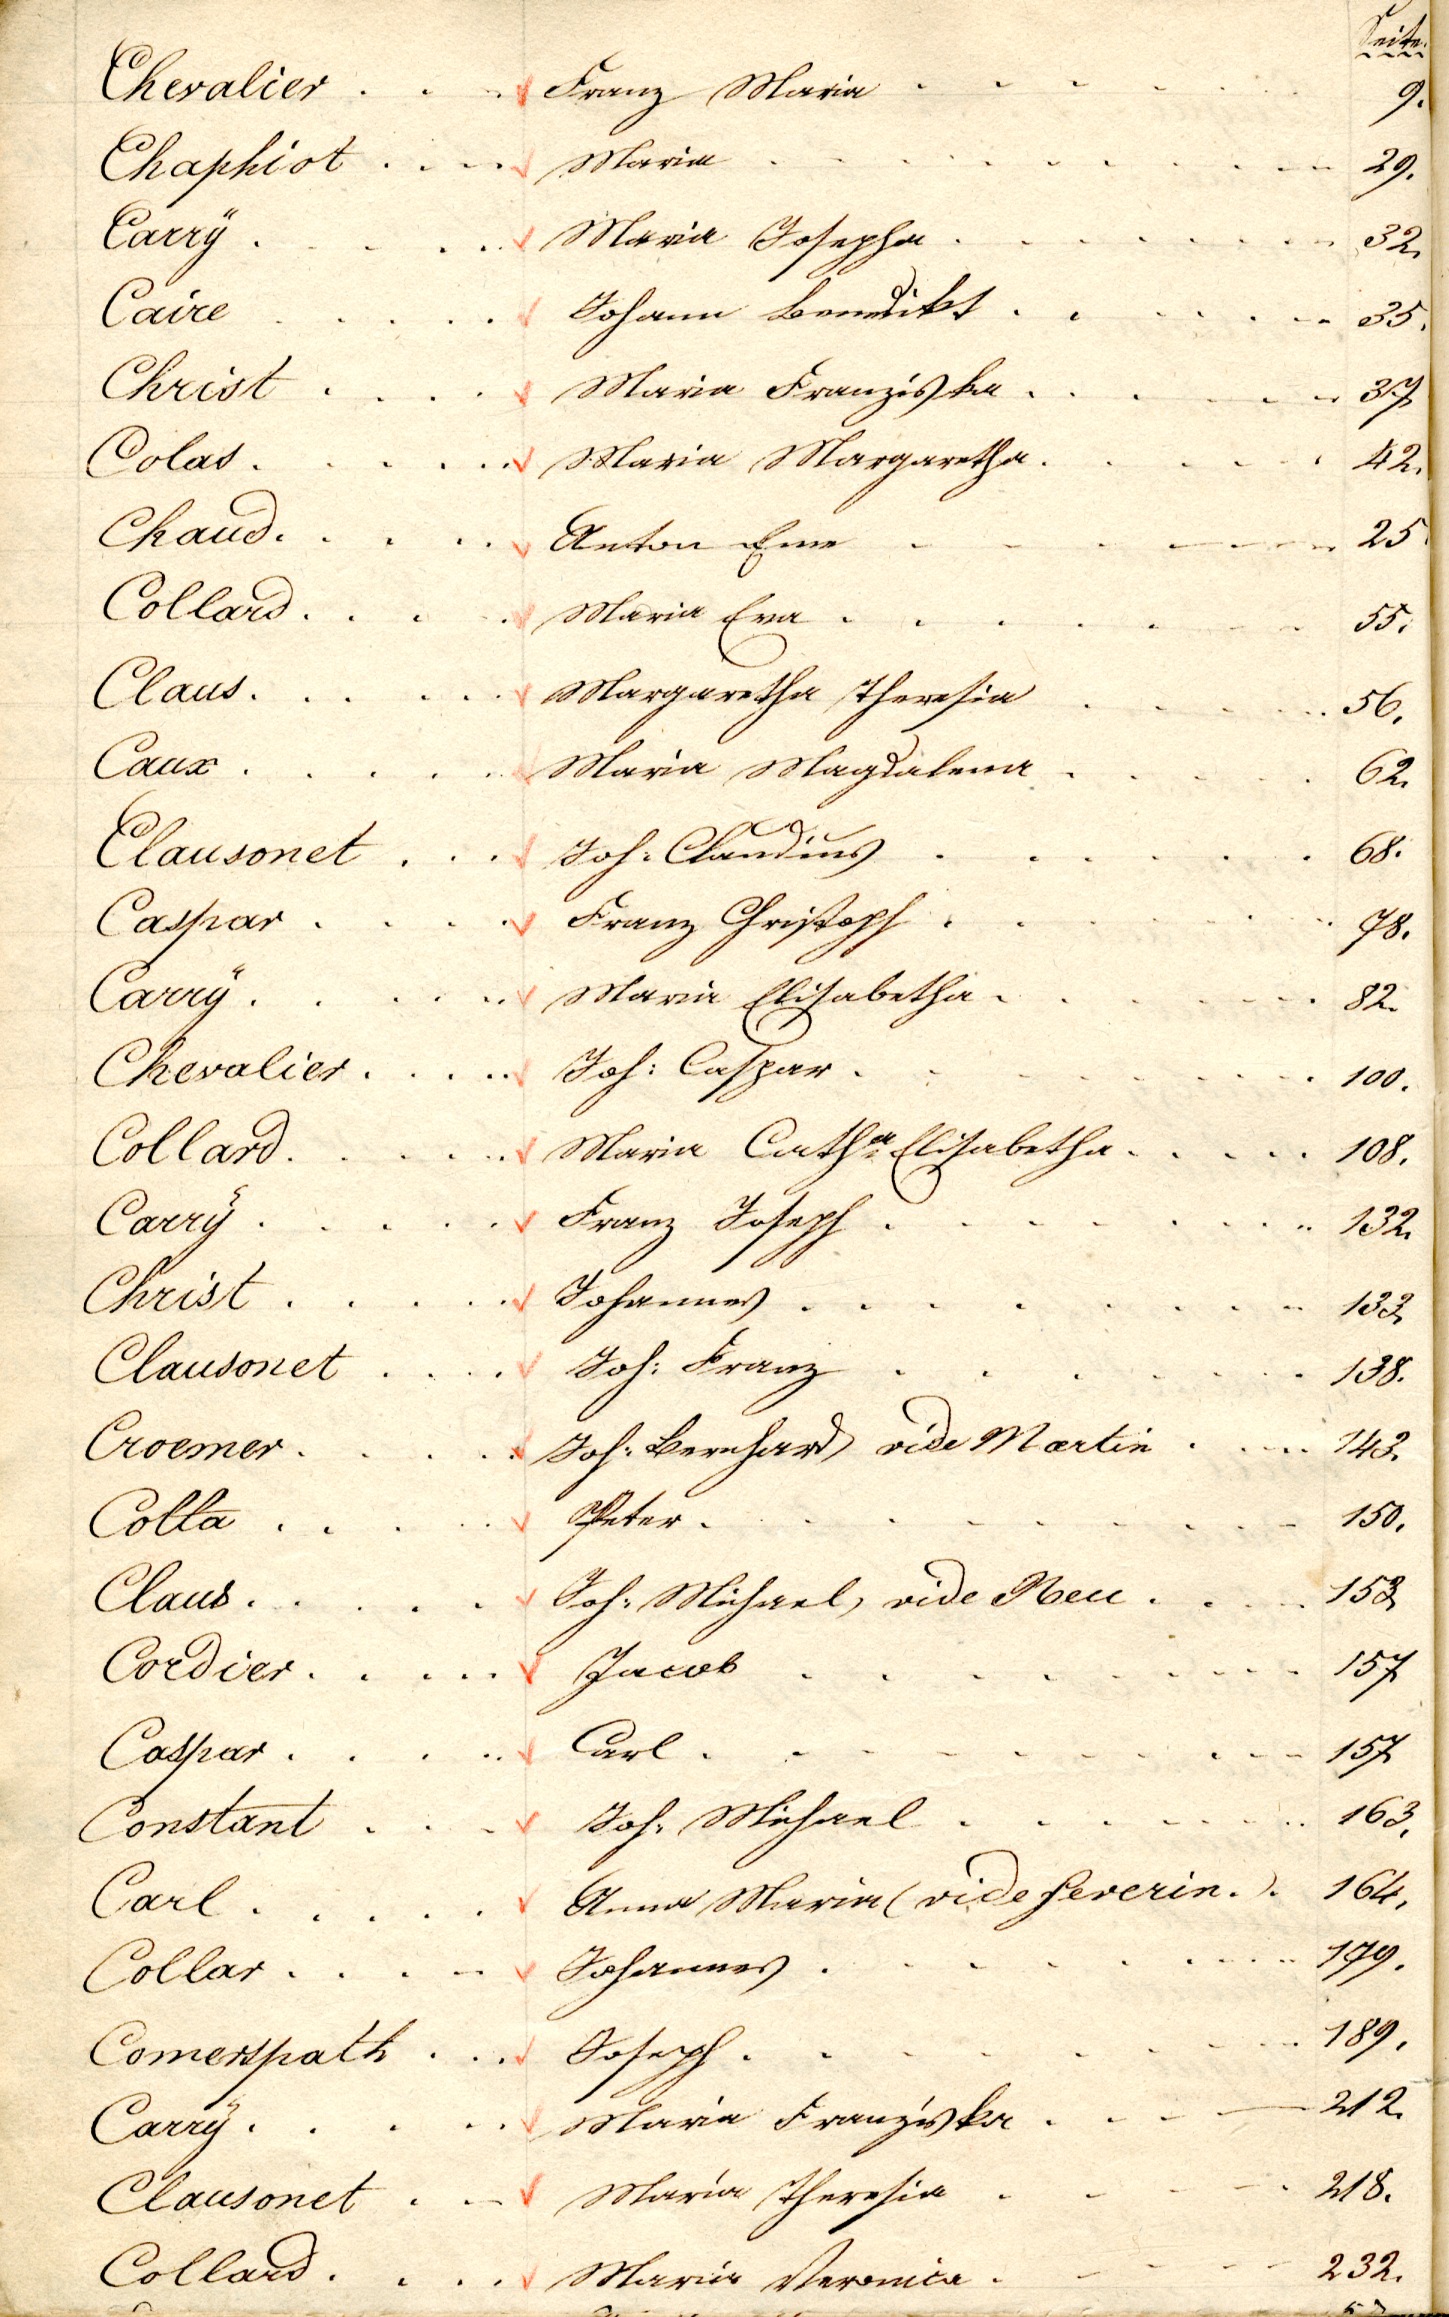 Seite.
Chevalier . . . Franz Maria . . . . . . 9.
Chaphiot . . . . Maria . . . . . . 29.
Carrÿ . . . . . Maria Josepha . . . . . . 32.
Caire . . . . . Johann Benedikt . . . . . . 35.
Christ . . . . Maria Franziska . . . . . . 37
Colas . . . . . Maria Margaretha . . . . . 42.
Chaud . . . . . Anton Eme . . . . . . 25
Collard . . . . Maria Eva . . . . . . 55.
Claus . . . . . Margaretha Theresia . . . . . 56.
Caux . . . . . Maria Magdalena . . . . . 62.
Clausonet . . . Joh: Claudius . . . . . . 68.
Caspar . . . . Franz Christoph . . . . . . 78.
Carrÿ . . . . . Maria Elisabetha . . . . . . 82.
Chevalier . . . . Joh: Caspar . . . . . . 100.
Collard . . . . . Maria Cath:a Elisabetha . . . . . 108.
Carrÿ . . . . . Franz Joseph . . . . . . 132.
Christ . . . . . Johannes . . . . . . 133
Clausonet . . . . Joh: Franz . . . . . . 138.
Croemer . . . . . Joh: Bernhard vide Martin . . . . 143.
Colla . . . . . Peter . . . . . . 150.
Claus . . . . . Joh: Michael, vide Neu . . . . 153
Cordier . . . . . Jacob . . . . . . 157
Caspar . . . . . Carl . . . . . . 157
Constant . . . Joh: Michael . . . . . . 163.
Carl . . . . . Anna Maria (vide Severin.) . 164.
Collar . . . . Johannes . . . . . . 179.
Comerspath . . . Joseph . . . . . . 189.
Carrÿ . . . . . Maria Franziska . . . . 212.
Clausonet . . Maria Theresia . . . . . 218.
Collard . . . . Maria Veronica . . . . 232.